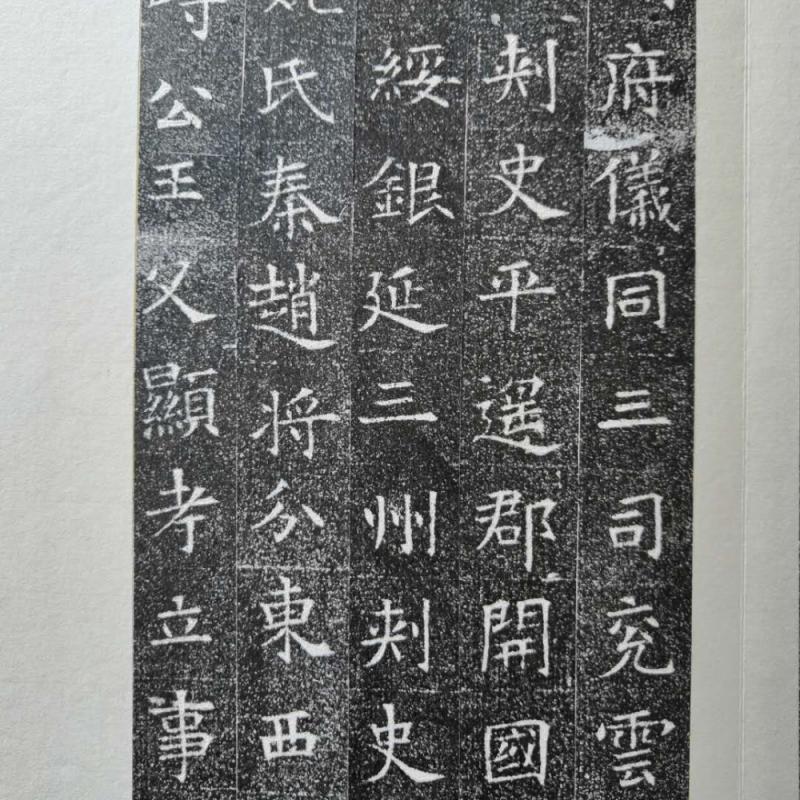 府儀同三司兖雲
刾史平遥郡開國
綏銀延三州刾史
氏秦趙将分東西
公王父顯考立事